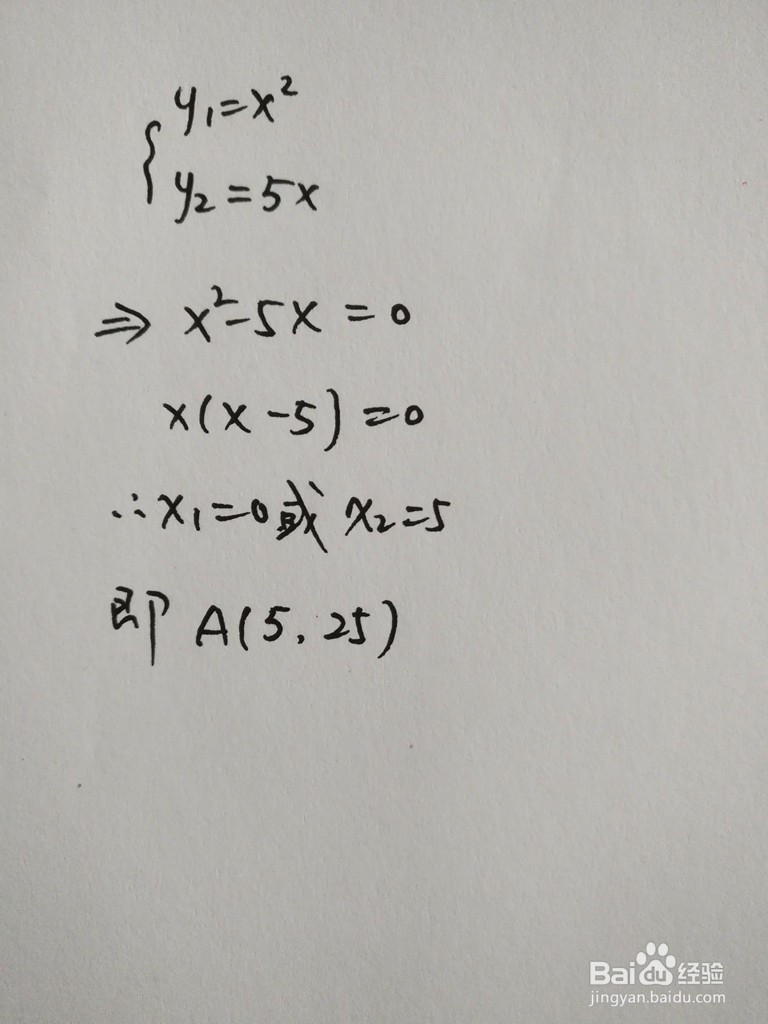 { y₁=x²
y₂=5x
⇒ x²-5x=0
x(x-5)=0
∴x₁=0或 x₂=5
即 A(5,25)
Baidu经验
jingyan.baidu.com